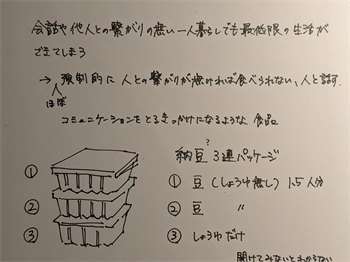 会話や他人との繋がりの無い一人暮らしでも最低限の生活が
できてしまう
→ 強制的に人との繋がりが無ければ食べられない、人と話す、
ほぼ
コミュニケーションをとるきっかけになるような食品
納豆? 3連パッケージ
① ① 豆 (しょうゆ無し) 1.5人分
② ② 豆 〃
③ ③ しょうゆだけ
開けてみないとわからない